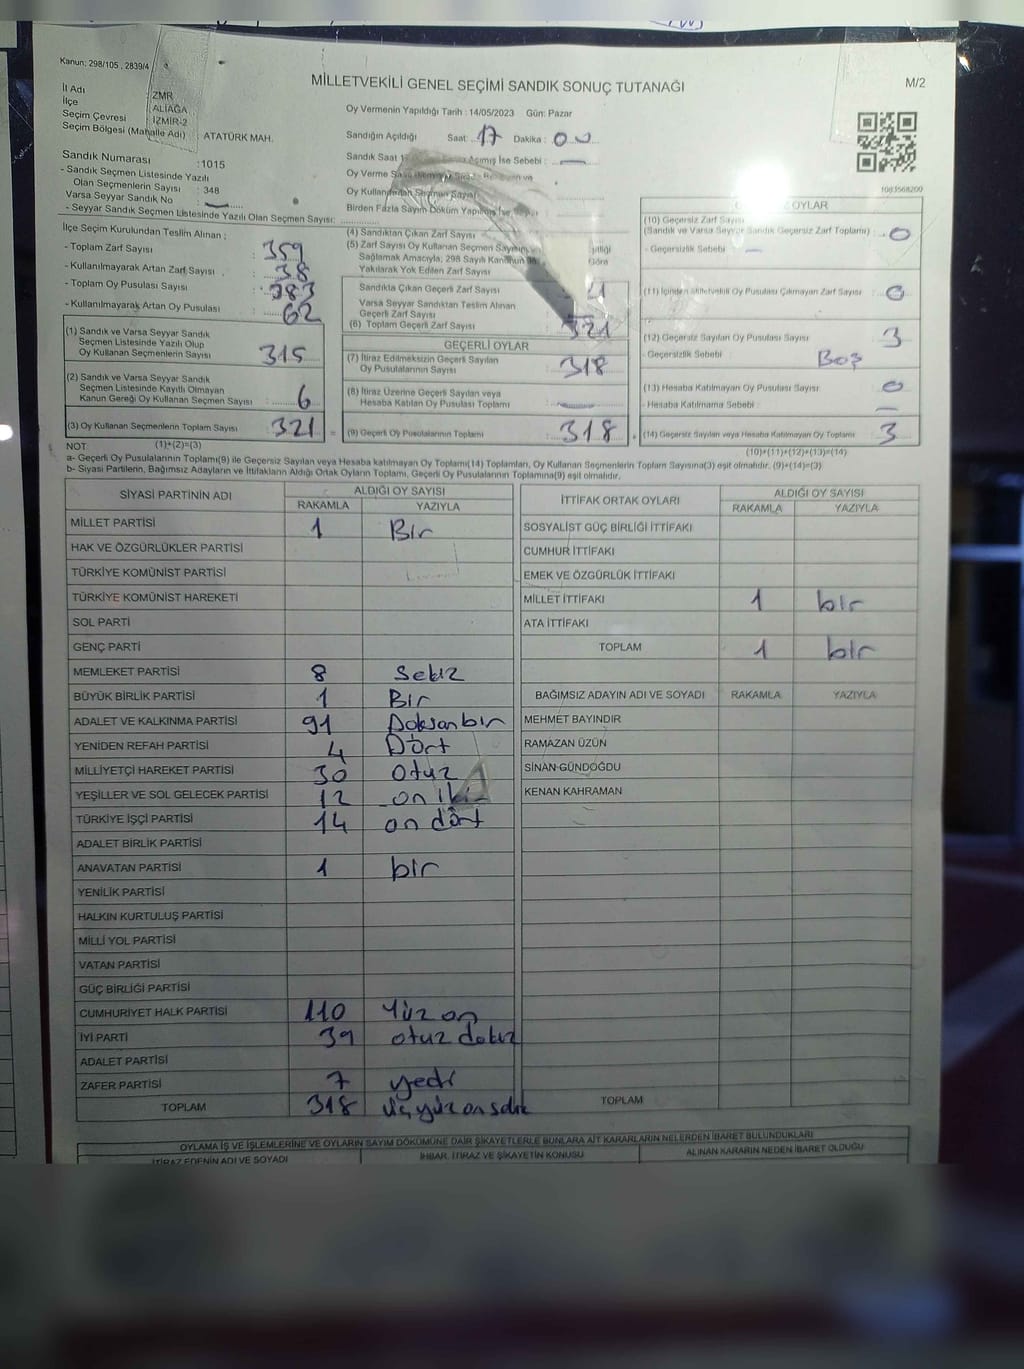 Kanun; 298/105 , 2839/4
MİLLETVEKİLİ GENEL SEÇİMİ SANDIK SONUÇ TUTANAĞI
M/2
İl Adı : ZMR
İlçe : ALİAĞA
Seçim Çevresi : İZMİR-2
Seçim Bölgesi (Mahalle Adı) : ATATÜRK MAH.
Oy Vermenin Yapıldığı Tarih : 14/05/2023 Gün: Pazar
Sandığın Açıldığı Saat : 17 Dakika : 00
Sandık Saat Açılmış İse Sebebi : —
Oy Verme
Oy Kullandırılan Seçmen Sayısı
Birden Fazla Sayım Döküm
1083568200
Sandık Numarası : 1015
- Sandık Seçmen Listesinde Yazılı
Olan Seçmenlerin Sayısı : 348
Varsa Seyyar Sandık No : —
- Seyyar Sandık Seçmen Listesinde Yazılı Olan Seçmen Sayısı:
İlçe Seçim Kurulundan Teslim Alınan ;
- Toplam Zarf Sayısı : 359
- Kullanılmayarak Artan Zarf Sayısı : 38
- Toplam Oy Pusulası Sayısı : 383
- Kullanılmayarak Artan Oy Pusulası : 62
(1) Sandık ve Varsa Seyyar Sandık
Seçmen Listesinde Yazılı Olup
Oy Kullanan Seçmenlerin Sayısı 315
(2) Sandık ve Varsa Seyyar Sandık
Seçmen Listesinde Kayıtlı Olmayan
Kanun Gereği Oy Kullanan Seçmen Sayısı : 6
(3) Oy Kullanan Seçmenlerin Toplam Sayısı : 321
(4) Sandıktan Çıkan Zarf Sayısı
(5) Zarf Sayısı Oy Kullanan Seçmen Sayısına
Sağlamak Amacıyla, 298 Sayılı Kanunun
Yakılarak Yok Edilen Zarf Sayısı
Sandıkta Çıkan Geçerli Zarf Sayısı
Varsa Seyyar Sandıktan Teslim Alınan
Geçerli Zarf Sayısı
(6) Toplam Geçerli Zarf Sayısı : 321
GEÇERLİ OYLAR
(7) İtiraz Edilmeksizin Geçerli Sayılan
Oy Pusulalarının Sayısı : 318
(8) İtiraz Üzerine Geçerli Sayılan veya
Hesaba Katılan Oy Pusulası Toplamı : —
(9) Geçerli Oy Pusulalarının Toplamı : 318
OYLAR
(10) Geçersiz Zarf Sayısı
(Sandık ve Varsa Seyyar Sandık Geçersiz Zarf Toplamı) : 0
- Geçersizlik Sebebi : —
(11) İçinden Milletvekili Oy Pusulası Çıkmayan Zarf Sayısı : 0
(12) Geçersiz Sayılan Oy Pusulası Sayısı : 3
- Geçersizlik Sebebi : Boş
(13) Hesaba Katılmayan Oy Pusulası Sayısı : 0
- Hesaba Katılmama Sebebi : —
(14) Geçersiz Sayılan veya Hesaba Katılmayan Oy Toplamı : 3
NOT: (1)+(2)=(3)
(10)+(11)+(12)+(13)=(14)
a- Geçerli Oy Pusulalarının Toplamı(9) ile Geçersiz Sayılan veya Hesaba katılmayan Oy Toplamı(14) Toplamları, Oy Kullanan Seçmenlerin Toplam Sayısına(3) eşit olmalıdır. (9)+(14)=(3)
b- Siyasi Partilerin, Bağımsız Adayların ve İttifakların Aldığı Ortak Oyların Toplamı, Geçerli Oy Pusulalarının Toplamına(9) eşit olmalıdır.
SİYASİ PARTİNİN ADI ALDIĞI OY SAYISI
RAKAMLA YAZIYLA
MİLLET PARTİSİ 1 Bir
HAK VE ÖZGÜRLÜKLER PARTİSİ
TÜRKİYE KOMÜNİST PARTİSİ
TÜRKİYE KOMÜNİST HAREKETİ
SOL PARTİ
GENÇ PARTİ
MEMLEKET PARTİSİ 8 Sekiz
BÜYÜK BİRLİK PARTİSİ 1 Bir
ADALET VE KALKINMA PARTİSİ 91 Doksanbir
YENİDEN REFAH PARTİSİ 4 Dört
MİLLİYETÇİ HAREKET PARTİSİ 30 otuz
YEŞİLLER VE SOL GELECEK PARTİSİ 12 on iki
TÜRKİYE İŞÇİ PARTİSİ 14 on dört
ADALET BİRLİK PARTİSİ
ANAVATAN PARTİSİ 1 bir
YENİLİK PARTİSİ
HALKIN KURTULUŞ PARTİSİ
MİLLİ YOL PARTİSİ
VATAN PARTİSİ
GÜÇ BİRLİĞİ PARTİSİ
CUMHURİYET HALK PARTİSİ 110 Yüz on
İYİ PARTİ 39 otuz dokuz
ADALET PARTİSİ
ZAFER PARTİSİ 7 yedi
TOPLAM 318
İTTİFAK ORTAK OYLARI ALDIĞI OY SAYISI
RAKAMLA YAZIYLA
SOSYALİST GÜÇ BİRLİĞİ İTTİFAKI
CUMHUR İTTİFAKI
EMEK VE ÖZGÜRLÜK İTTİFAKI
MİLLET İTTİFAKI 1 bir
ATA İTTİFAKI
TOPLAM 1 bir
BAĞIMSIZ ADAYIN ADI VE SOYADI RAKAMLA YAZIYLA
MEHMET BAYINDIR
RAMAZAN ÜZÜN
SİNAN GÜNDOĞDU
KENAN KAHRAMAN
TOPLAM
OYLAMA İŞ VE İŞLEMLERİNE VE OYLARIN SAYIM DÖKÜMÜNE DAİR ŞİKAYETLERLE BUNLARA AİT KARARLARIN NELERDEN İBARET BULUNDUKLARI
İTİRAZ EDENİN ADI VE SOYADI İHBAR, İTİRAZ VE ŞİKAYETİN KONUSU ALINAN KARARIN NEDEN İBARET OLDUĞU